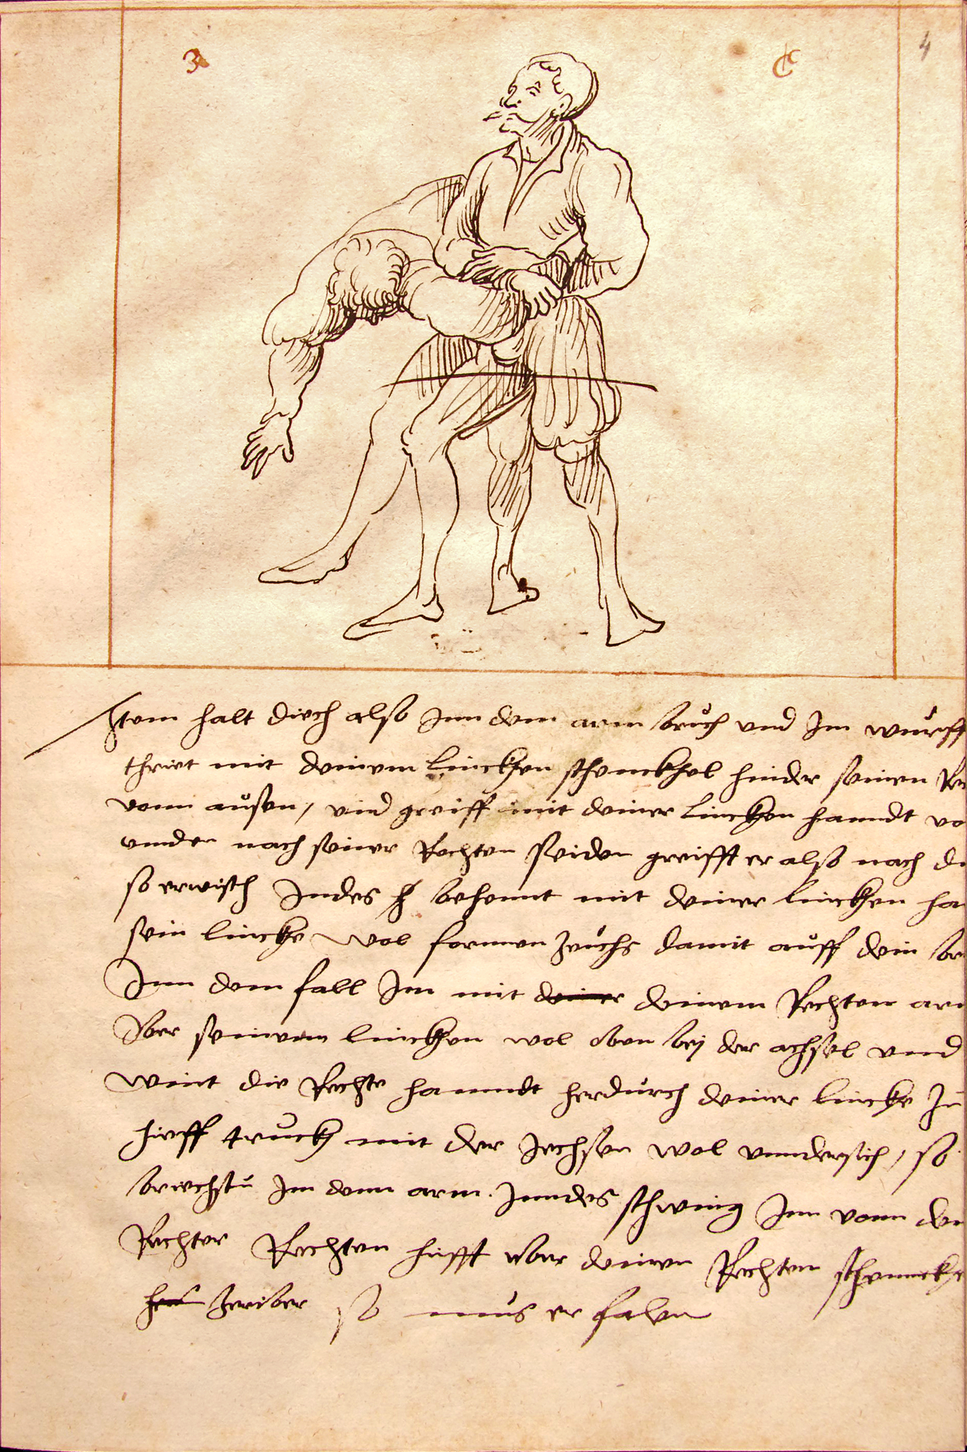 3 C 4
Item halt dich also Inn dem arm bruch und Im wurff
thrit mit deinem linckhen schenckhel hinder seinen
vonn aüsen, und greiff mit deiner linckhen hanndt
unnder nach seiner Rechten seiden greifft er also nach
so erwisch Indes behennt mit deiner linckhen
sein lincke wol fornnen Zeüchs damit aüff dein
Inn dem fall Im mit deiner deinem Rechten
Vber seinem linckhen wol oben bej der achsel und
wint die Rechte hanndt herdürch deiner lincke
hieff truckh mit der Jechsen wol unndersich, so
brechstu Im denn arm. Inndes schwing Inn vonn
Rechter Rechten hüfft vber deinen Rechten
heruber so mus er falen